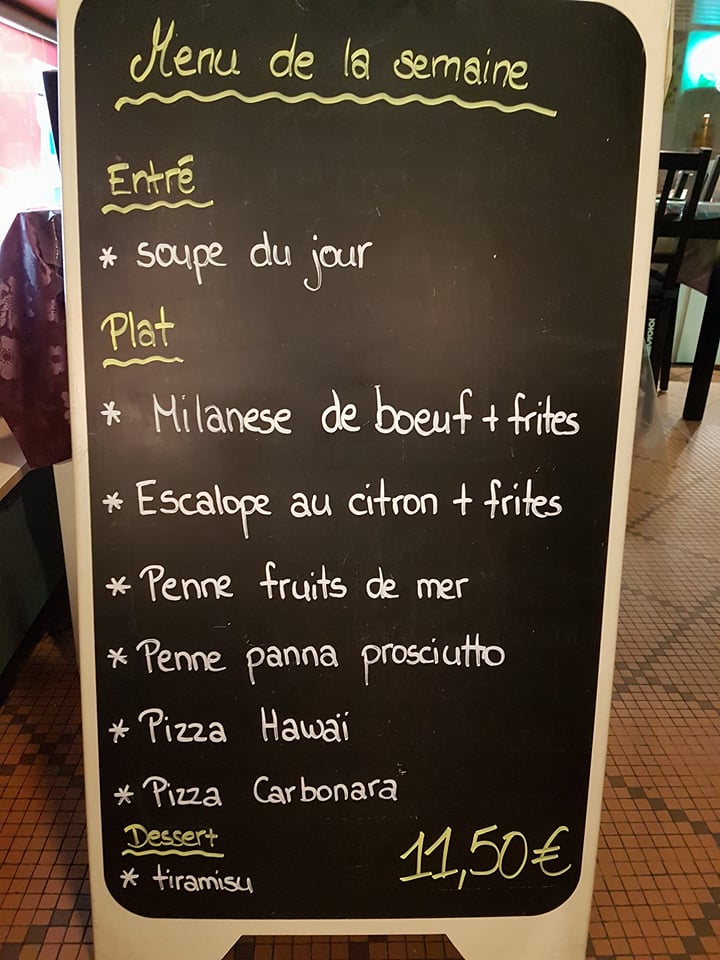 Menu de la semaine
Entré
* soupe du jour
Plat
* Milanese de boeuf + frites
* Escalope au citron + frites
* Penne fruits de mer
* Penne panna prosciutto
* Pizza Hawaï
* Pizza Carbonara
Dessert
* tiramisu
11,50€